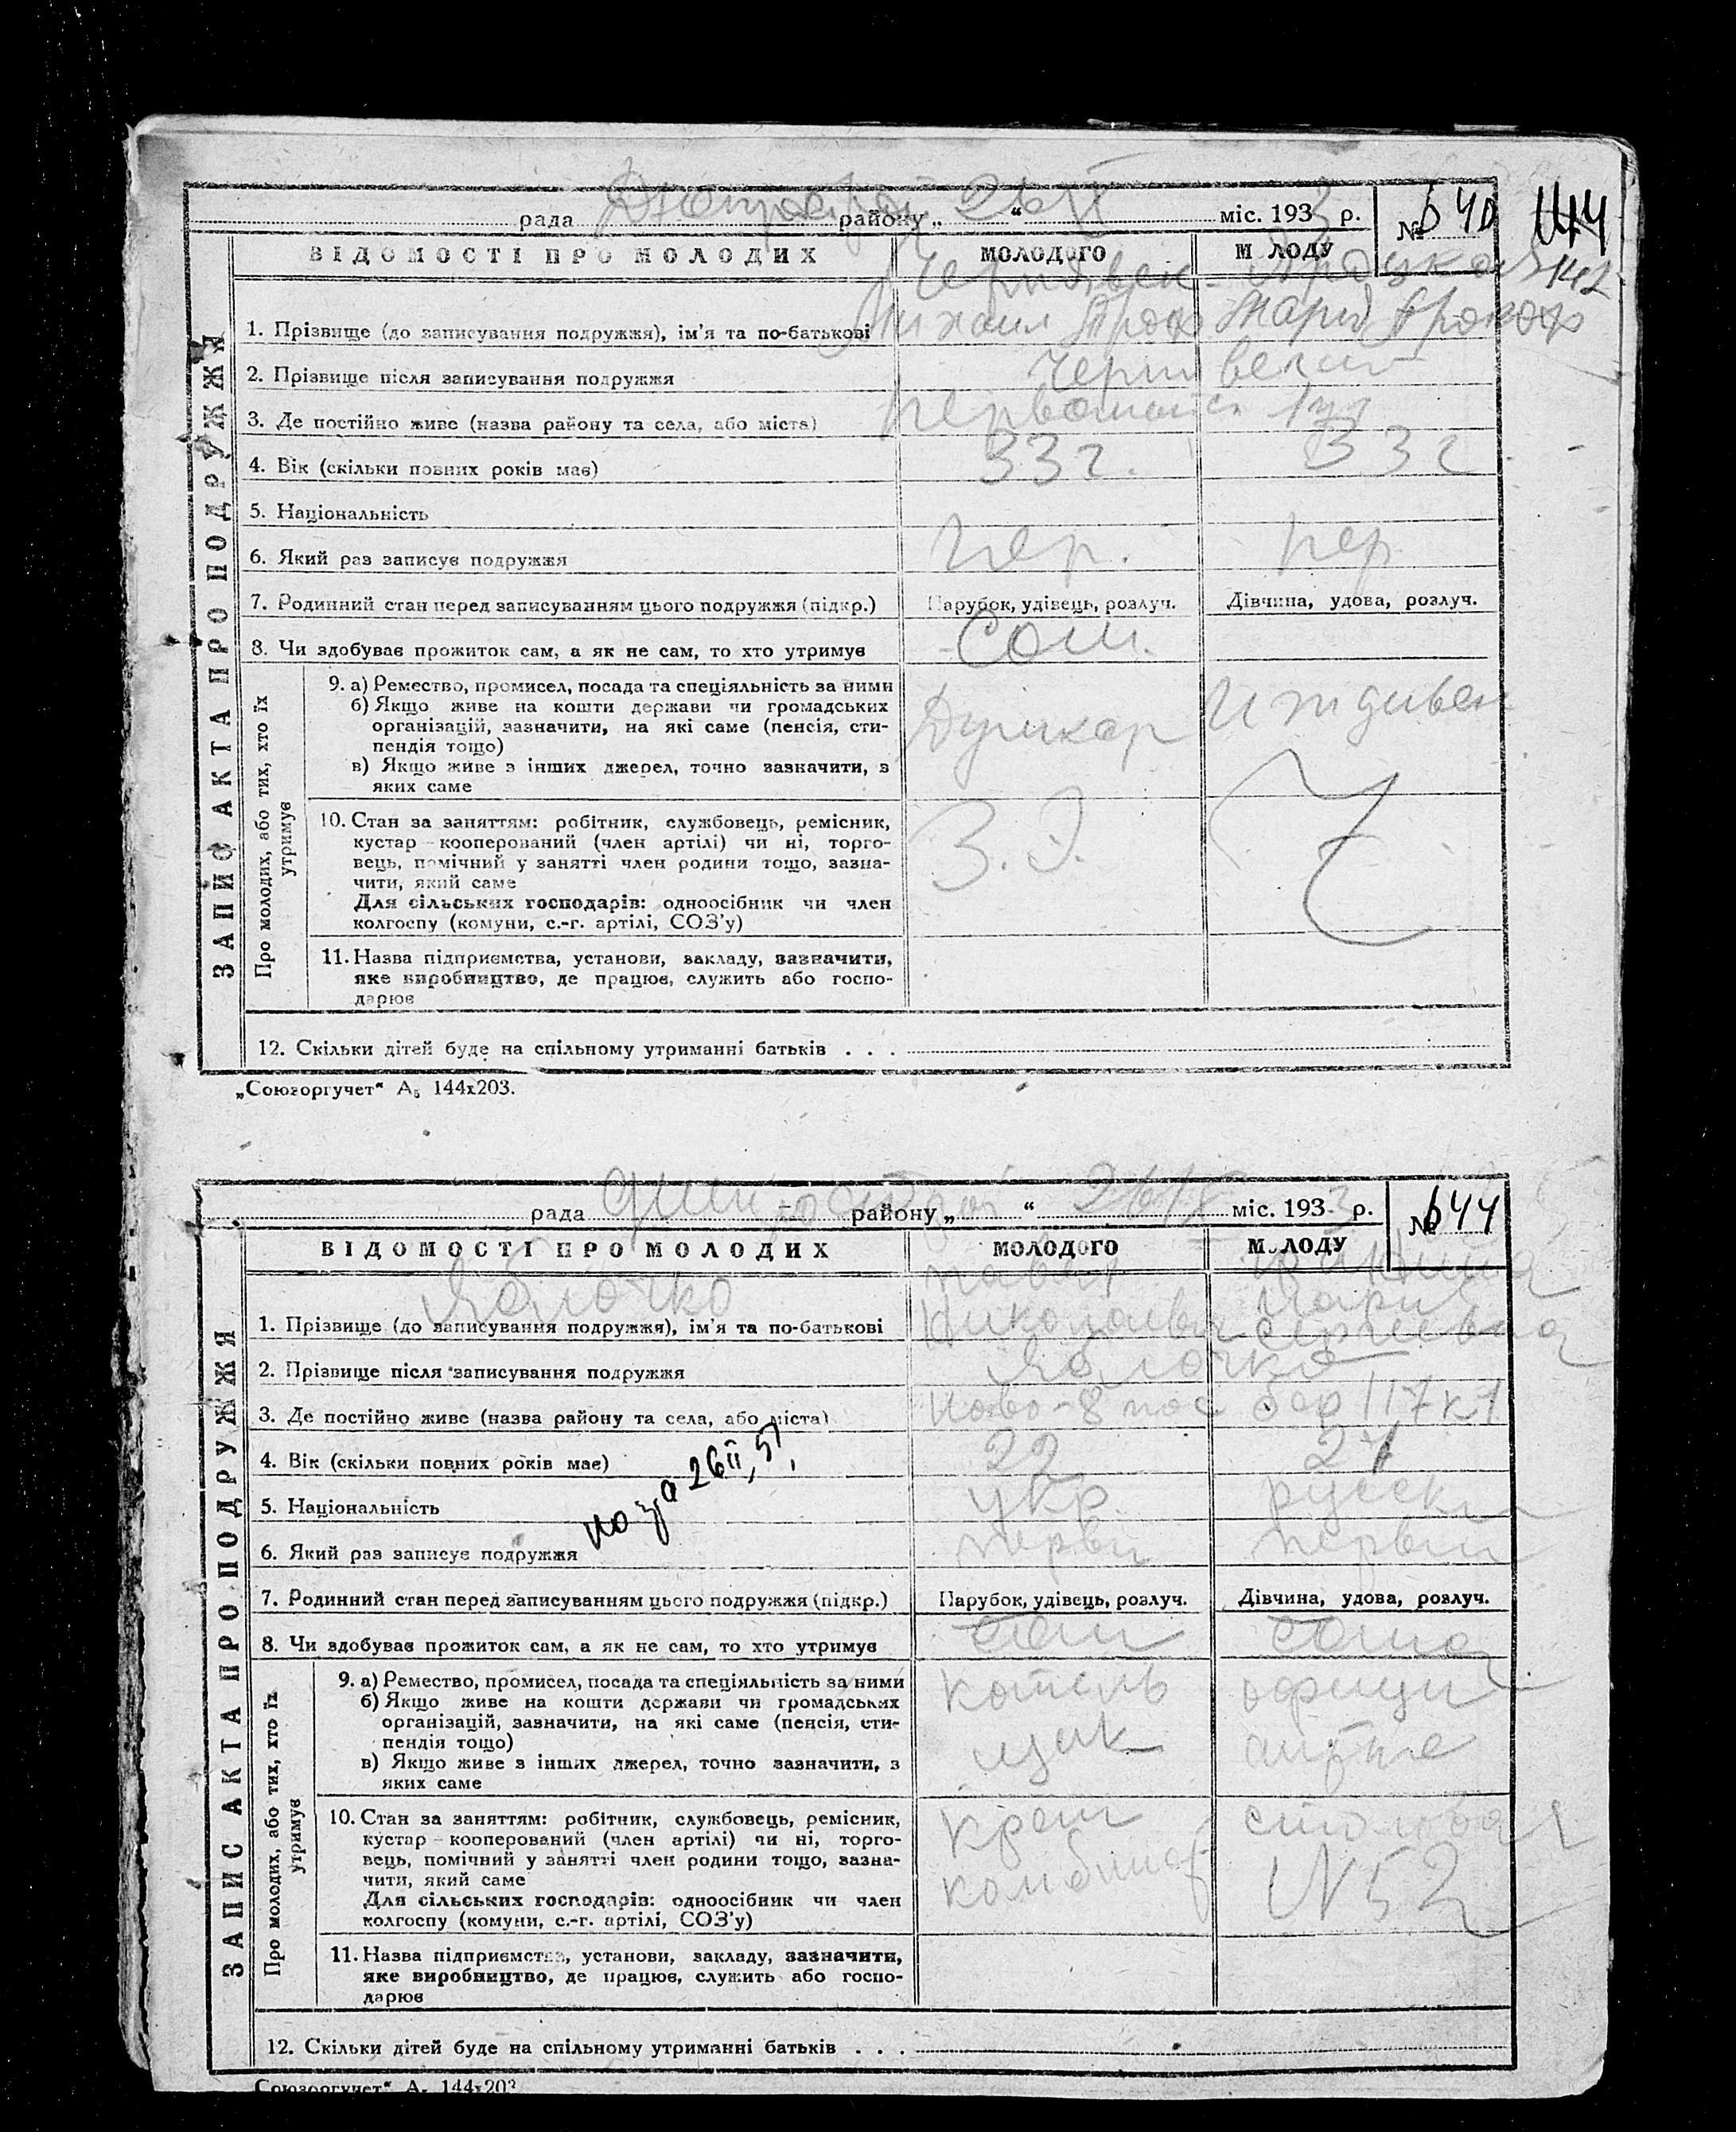 рада Дніпрострой району „ 26 “ V міс. 1933 р. № 640
144
142
ВІДОМОСТІ ПРО МОЛОДИХ МОЛОДОГО МОЛОДУ
1. Прізвище (до записування подружжя), ім'я та по-батькові
Михаил Проф Мария Прокоф
2. Прізвище після записування подружжя
3. Де постійно живе (назва району та села, або міста)
4. Вік (скільки повних років має) 33 г. 33 г
5. Національність
6. Який раз записує подружжя пер. пер
7. Родинний стан перед записуванням цього подружжя (підкр.) Парубок, удівець, розлуч. Дівчина, удова, розлуч.
8. Чи здобуває прожиток сам, а як не сам, то хто утримує Сам.
ЗАПИС АКТА ПРО ПОДРУЖЖЯ
Про молодих, або тих, хто їх утримує
9. а) Ремество, промисел, посада та спеціяльність за ними
б) Якщо живе на кошти держави чи громадських
організацій, зазначити, на які саме (пенсія, сти-
пендія тощо)
в) Якщо живе з інших джерел, точно зазначити, з
яких саме
Иждивен
10. Стан за заняттям: робітник, службовець, ремісник,
кустар – кооперований (член артілі) чи ні, торго-
вець, помічний у занятті член родини тощо, зазна-
чити, який саме
Для сільських господарів: одноосібник чи член
колгоспу (комуни, с.-г. артілі, СОЗ'у)
11. Назва підприємства, установи, закладу, зазначити,
яке виробництво, де працює, служить або госпо-
дарює
12. Скільки дітей буде на спільному утриманні батьків . . .
„Союзоргучет“ А₅ 144х203.
рада району „ 26 “ міс. 1933 р. № 644
ВІДОМОСТІ ПРО МОЛОДИХ МОЛОДОГО МОЛОДУ
Яблочко Павел
1. Прізвище (до записування подружжя), ім'я та по-батькові Николаевич Мария Сергиевна
2. Прізвище після записування подружжя Яблочко
3. Де постійно живе (назва району та села, або міста) Ново-8 пос бар 117 к 1
4. Вік (скільки повних років має) 22 21
5. Національність укр. русская
6. Який раз записує подружжя первый первый
7. Родинний стан перед записуванням цього подружжя (підкр.) Парубок, удівець, розлуч. Дівчина, удова, розлуч.
8. Чи здобуває прожиток сам, а як не сам, то хто утримує сам сама
ЗАПИС АКТА ПРО ПОДРУЖЖЯ
Про молодих, або тих, хто їх утримує
9. а) Ремество, промисел, посада та спеціяльність за ними
б) Якщо живе на кошти держави чи громадських
організацій, зазначити, на які саме (пенсія, сти-
пендія тощо)
в) Якщо живе з інших джерел, точно зазначити, з
яких саме
котель
щик
официантке
10. Стан за заняттям: робітник, службовець, ремісник,
кустар – кооперований (член артілі) чи ні, торго-
вець, помічний у занятті член родини тощо, зазна-
чити, який саме
Для сільських господарів: одноосібник чи член
колгоспу (комуни, с.-г. артілі, СОЗ'у)
комбинат
столовая
N 52
11. Назва підприємства, установи, закладу, зазначити,
яке виробництво, де працює, служить або госпо-
дарює
12. Скільки дітей буде на спільному утриманні батьків . . .
„Союзоргучет“ А₅ 144х203